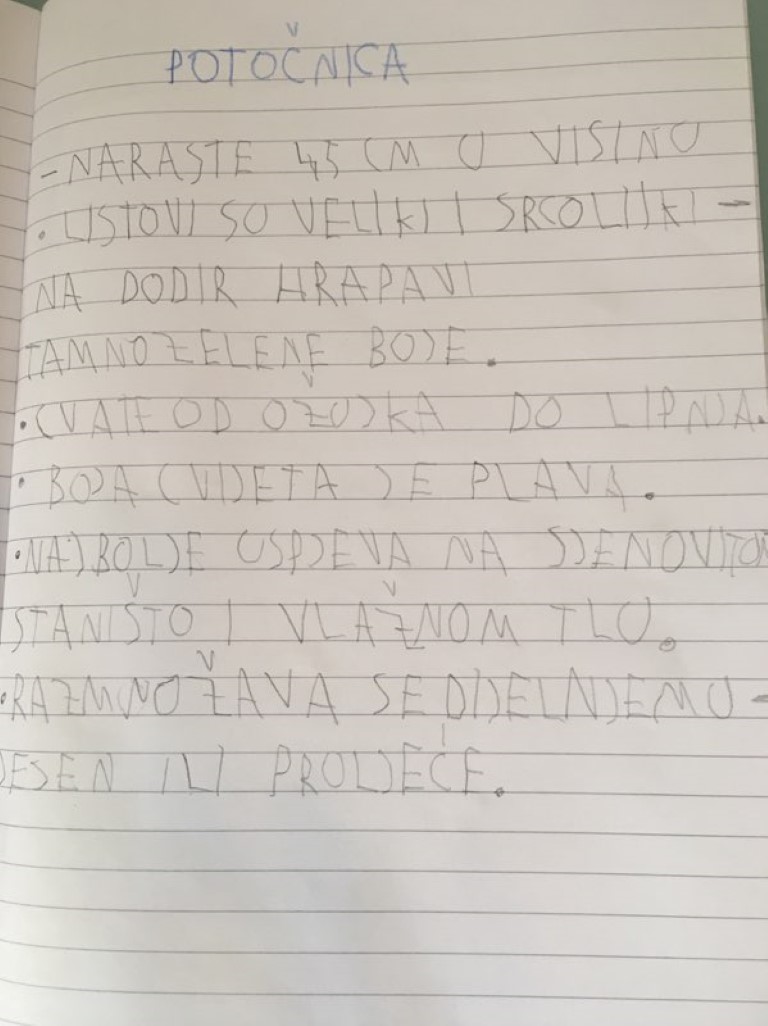 POTOČNICA
- NARASTE 45 CM U VISINU
• LISTOVI SU VELIKI I SRCOLIJKI -
NA DODIR HRAPAVI
TAMNOZELENE BOJE.
• CVATE OD OŽUJKA DO LIPNJA.
• BOJA CVIJETA JE PLAVA.
• NAJBOLJE USPJEVA NA SJENOVITOM
STANIŠTU I VLAŽNOM TLU.
• RAZMNOŽAVA SE DIJELNJEM U -
JESEN ILI PROLJEĆE.